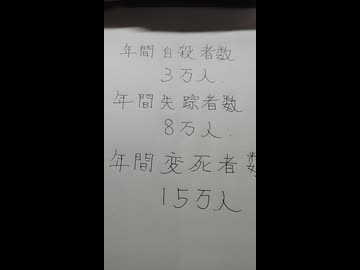 年間自殺者数
3万人
年間失踪者数
8万人.
年間変死者数
15万人